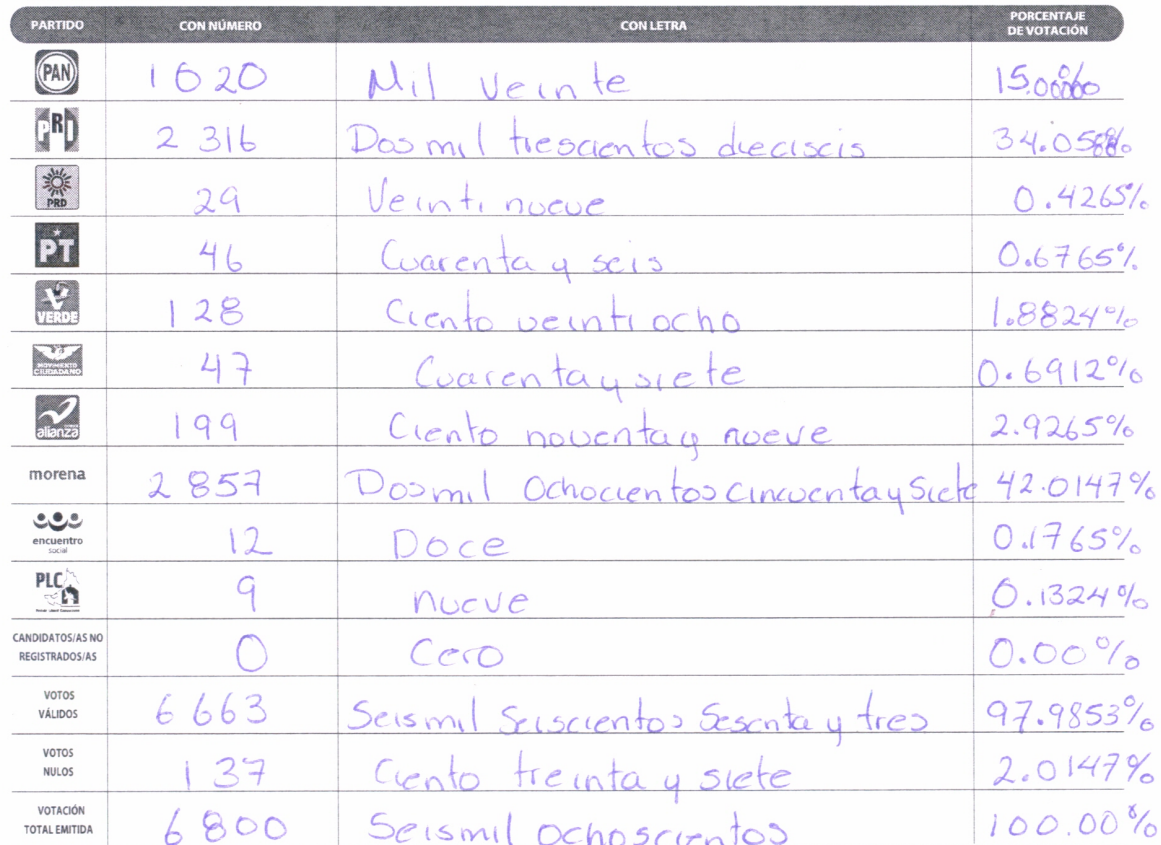 PARTIDO CON NÚMERO CON LETRA PORCENTAJE DE VOTACIÓN
PAN 1020 Mil veinte 15.0000%
PRI 2 316 Dos mil trescientos dieciseis 34.0588%
PRD 29 Veinti nueve 0.4265%
PT 46 Cuarenta y seis 0.6765%
VERDE 128 Ciento veinti ocho 1.8824%
MOVIMIENTO CIUDADANO 47 Cuarenta y siete 0.6912%
alianza 199 Ciento noventa y nueve 2.9265%
morena 2 857 Dos mil Ochocientos Cincuenta y Siete 42.0147%
encuentro social 12 Doce 0.1765%
PLC 9 nueve 0.1324%
CANDIDATOS/AS NO REGISTRADOS/AS 0 Cero 0.00%
VOTOS VÁLIDOS 6 663 Seismil Seiscientos Sesenta y tres 97.9853%
VOTOS NULOS 137 Ciento treinta y siete 2.0147%
VOTACIÓN TOTAL EMITIDA 6 800 Seismil ochoscientos 100.00%